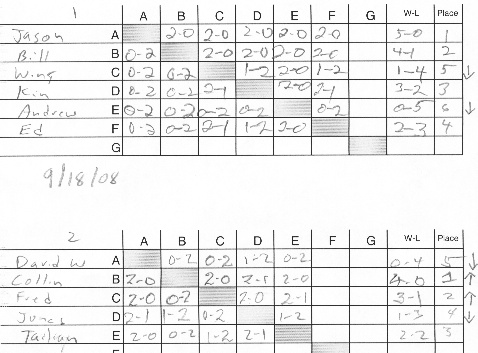 1 A B C D E F G W-L Place
Jason A 2-0 2-0 2-0 2-0 2-0 5-0 1
Bill B 0-2 2-0 2-0 2-0 2-0 4-1 2
Wing C 0-2 0-2 1-2 2-0 1-2 1-4 5 ↓
Kin D 0-2 0-2 2-1 2-0 2-1 3-2 3
Andrew E 0-2 0-2 0-2 0-2 0-2 0-5 6 ↓
Ed F 0-2 0-2 2-1 1-2 2-0 2-3 4
G
9/18/08
2 A B C D E F G W-L Place
David W A 0-2 0-2 1-2 0-2 0-4 5 ↓
Collin B 2-0 2-0 2-0 4-0 1 ↑
Fred C 2-0 0-2 2-0 2-1 3-1 2 ↑
D 2-1 1-2 0-2 1-2 1-3 4 ↓
E 2-0 0-2 1-2 2-1 2-2 3